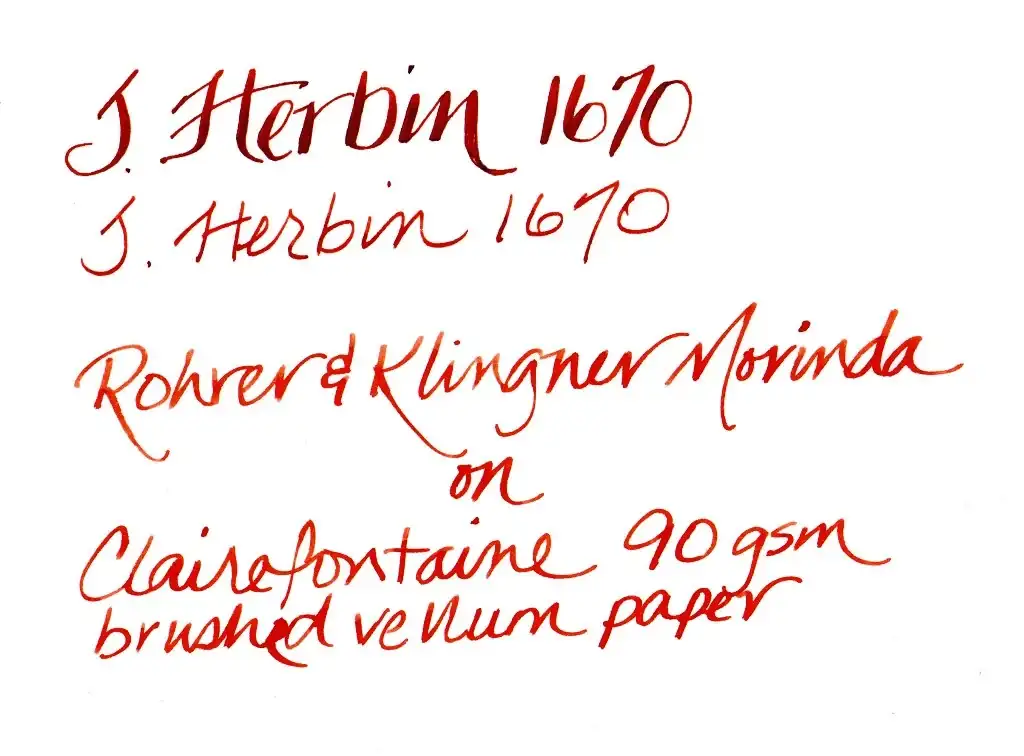 J. Herbin 1670
J. Herbin 1670
Rohrer & Klingner Morinda
on
Clairefontaine 90 gsm
brushed vellum paper